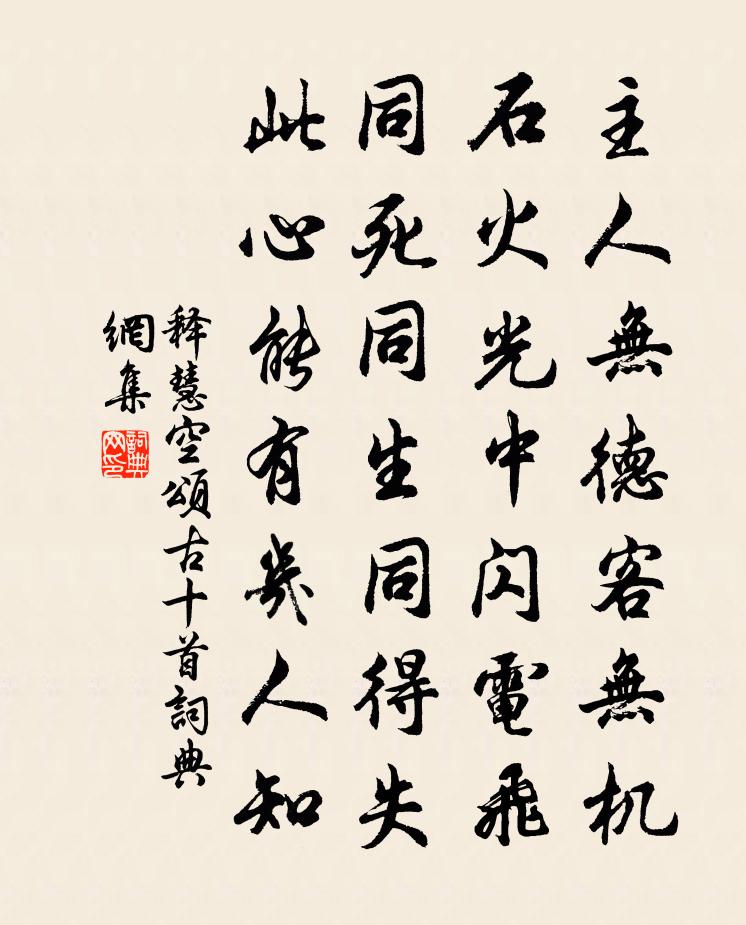 主人無德客無机
石火光中閃電飛
同死同生同得失
此心能有幾人知
釋慧空頌古十首詞典
網集
詞典
网印